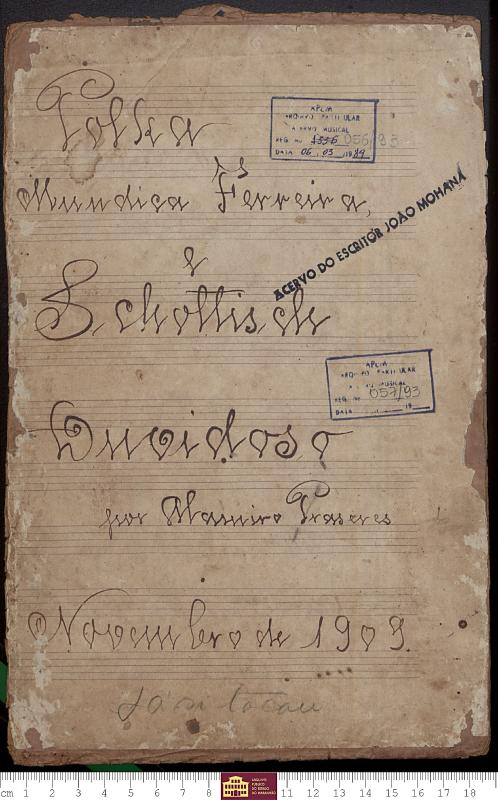 Polka
Mundica Ferreira,
e
Schottisch
Duvidoso
por Alamiro Prazeres
Novembro de 1909.
APEM
ARQUIVO PARTICULAR
ACERVO MUSICAL
REG. Nº 1336 056/93
DATA 06 . 03 . 1989
ACERVO DO ESCRITOR JOÃO MOHANÁ
APEM
ARQUIVO PARTICULAR
ACERVO MUSICAL
REG. Nº 057/93
DATA 19
cm 1 2 3 4 5 6 7 8 11 12 13 14 15 16 17 18
ARQUIVO
PÚBLICO
DO ESTADO
DO MARANHÃO